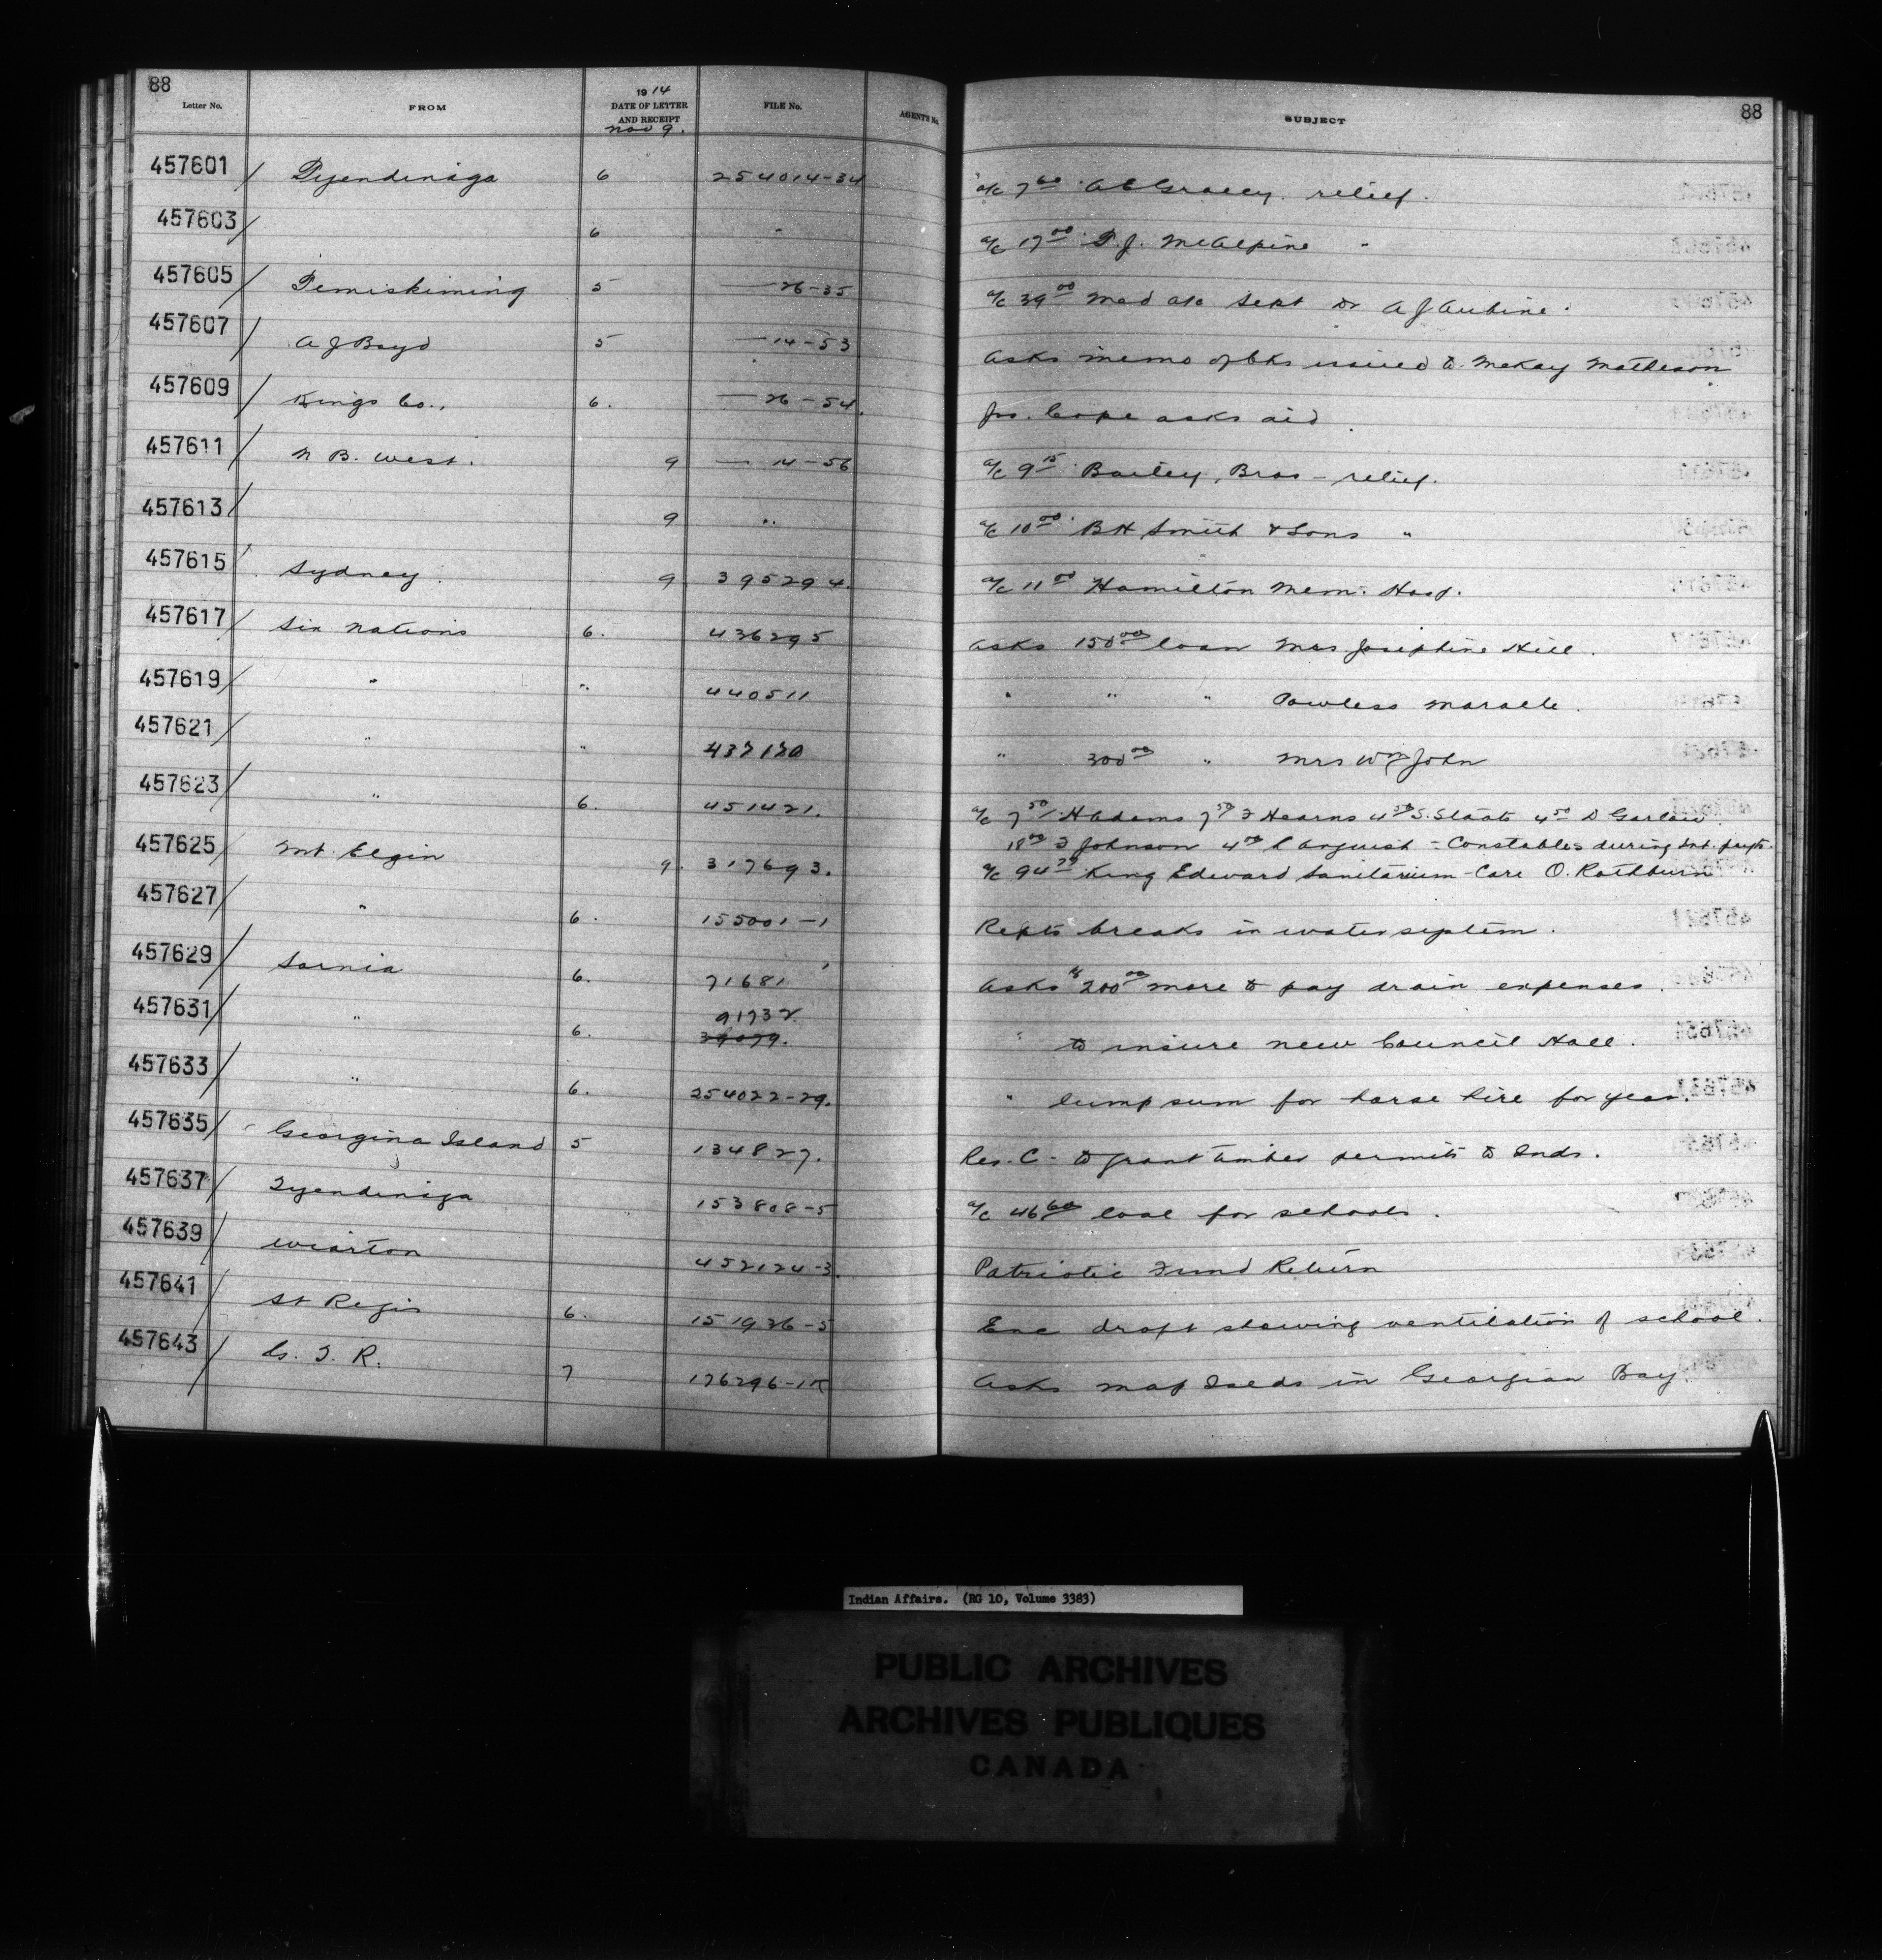 88
Letter No. FROM 1914 DATE OF LETTER AND RECEIPT FILE No. AGENT'S No. SUBJECT 88
Nov 9.
457601 Tyendinaga 6 254014-34 a/c 7 60 A E Gracey. relief.
457603 6 " a/c 17 00 T. J. McAlpine "
457605 Temiskiming 5 — 26-35 a/c 39 00 Med a/c Sept Dr A J Aubine.
457607 A J Boyd 5 — 14-53 Asks memo of cks issued to McKay Matheson
457609 Kings Co., 6. — 26-54. Jos. Cope asks aid.
457611 N B. West. 9 — 14-56 a/c 9 15 Bailey Bros - relief.
457613 9 " a/c 10 00 B H Smith & Sons "
457615 Sydney. 9 395294. a/c 11 00 Hamilton Mem. Hosp.
457617 Six Nations 6. 436295 Asks 150 00 loan Mrs Josephine Hill.
457619 " " 440511 " " " Powless Maracle.
457621 " " 437170 " 300 00 " Mrs Wm John
457623 " 6. 451421. a/c 7 50 H Adams 7 50 F Hearns 4 50 S. Staats 4 50 D Garlow
18 00 J Johnson 4 00 C Anguish - Constables during Int. payts.
457625 Mt. Elgin 9. 317693. a/c 94 29 King Edward Sanitarium - Care O. Rathburn
457627 " 6. 155001-1 Repts breaks in water system.
457629 Sarnia 6. 71681 Asks $200 00 more to pay drain expenses.
457631 " 6. 91732 39079. " to insure new Council Hall.
457633 " 6. 254022-29. " lump sum for horse hire for year.
457635 Georgina Island 5 134827. Res. C - to grant timber permits to Inds.
457637 Tyendinaga 153808-5 a/c 46 60 coal for schools.
457639 Wiarton 452124-3. Patriotic Fund Return
457641 St Regis 6. 151936-5 Enc draft showing ventilation of school.
457643 G. T. R. 7 176296-1 Asks map Islds in Georgian Bay.
Indian Affairs. (RG 10, Volume 3383)
PUBLIC ARCHIVES
ARCHIVES PUBLIQUES
CANADA